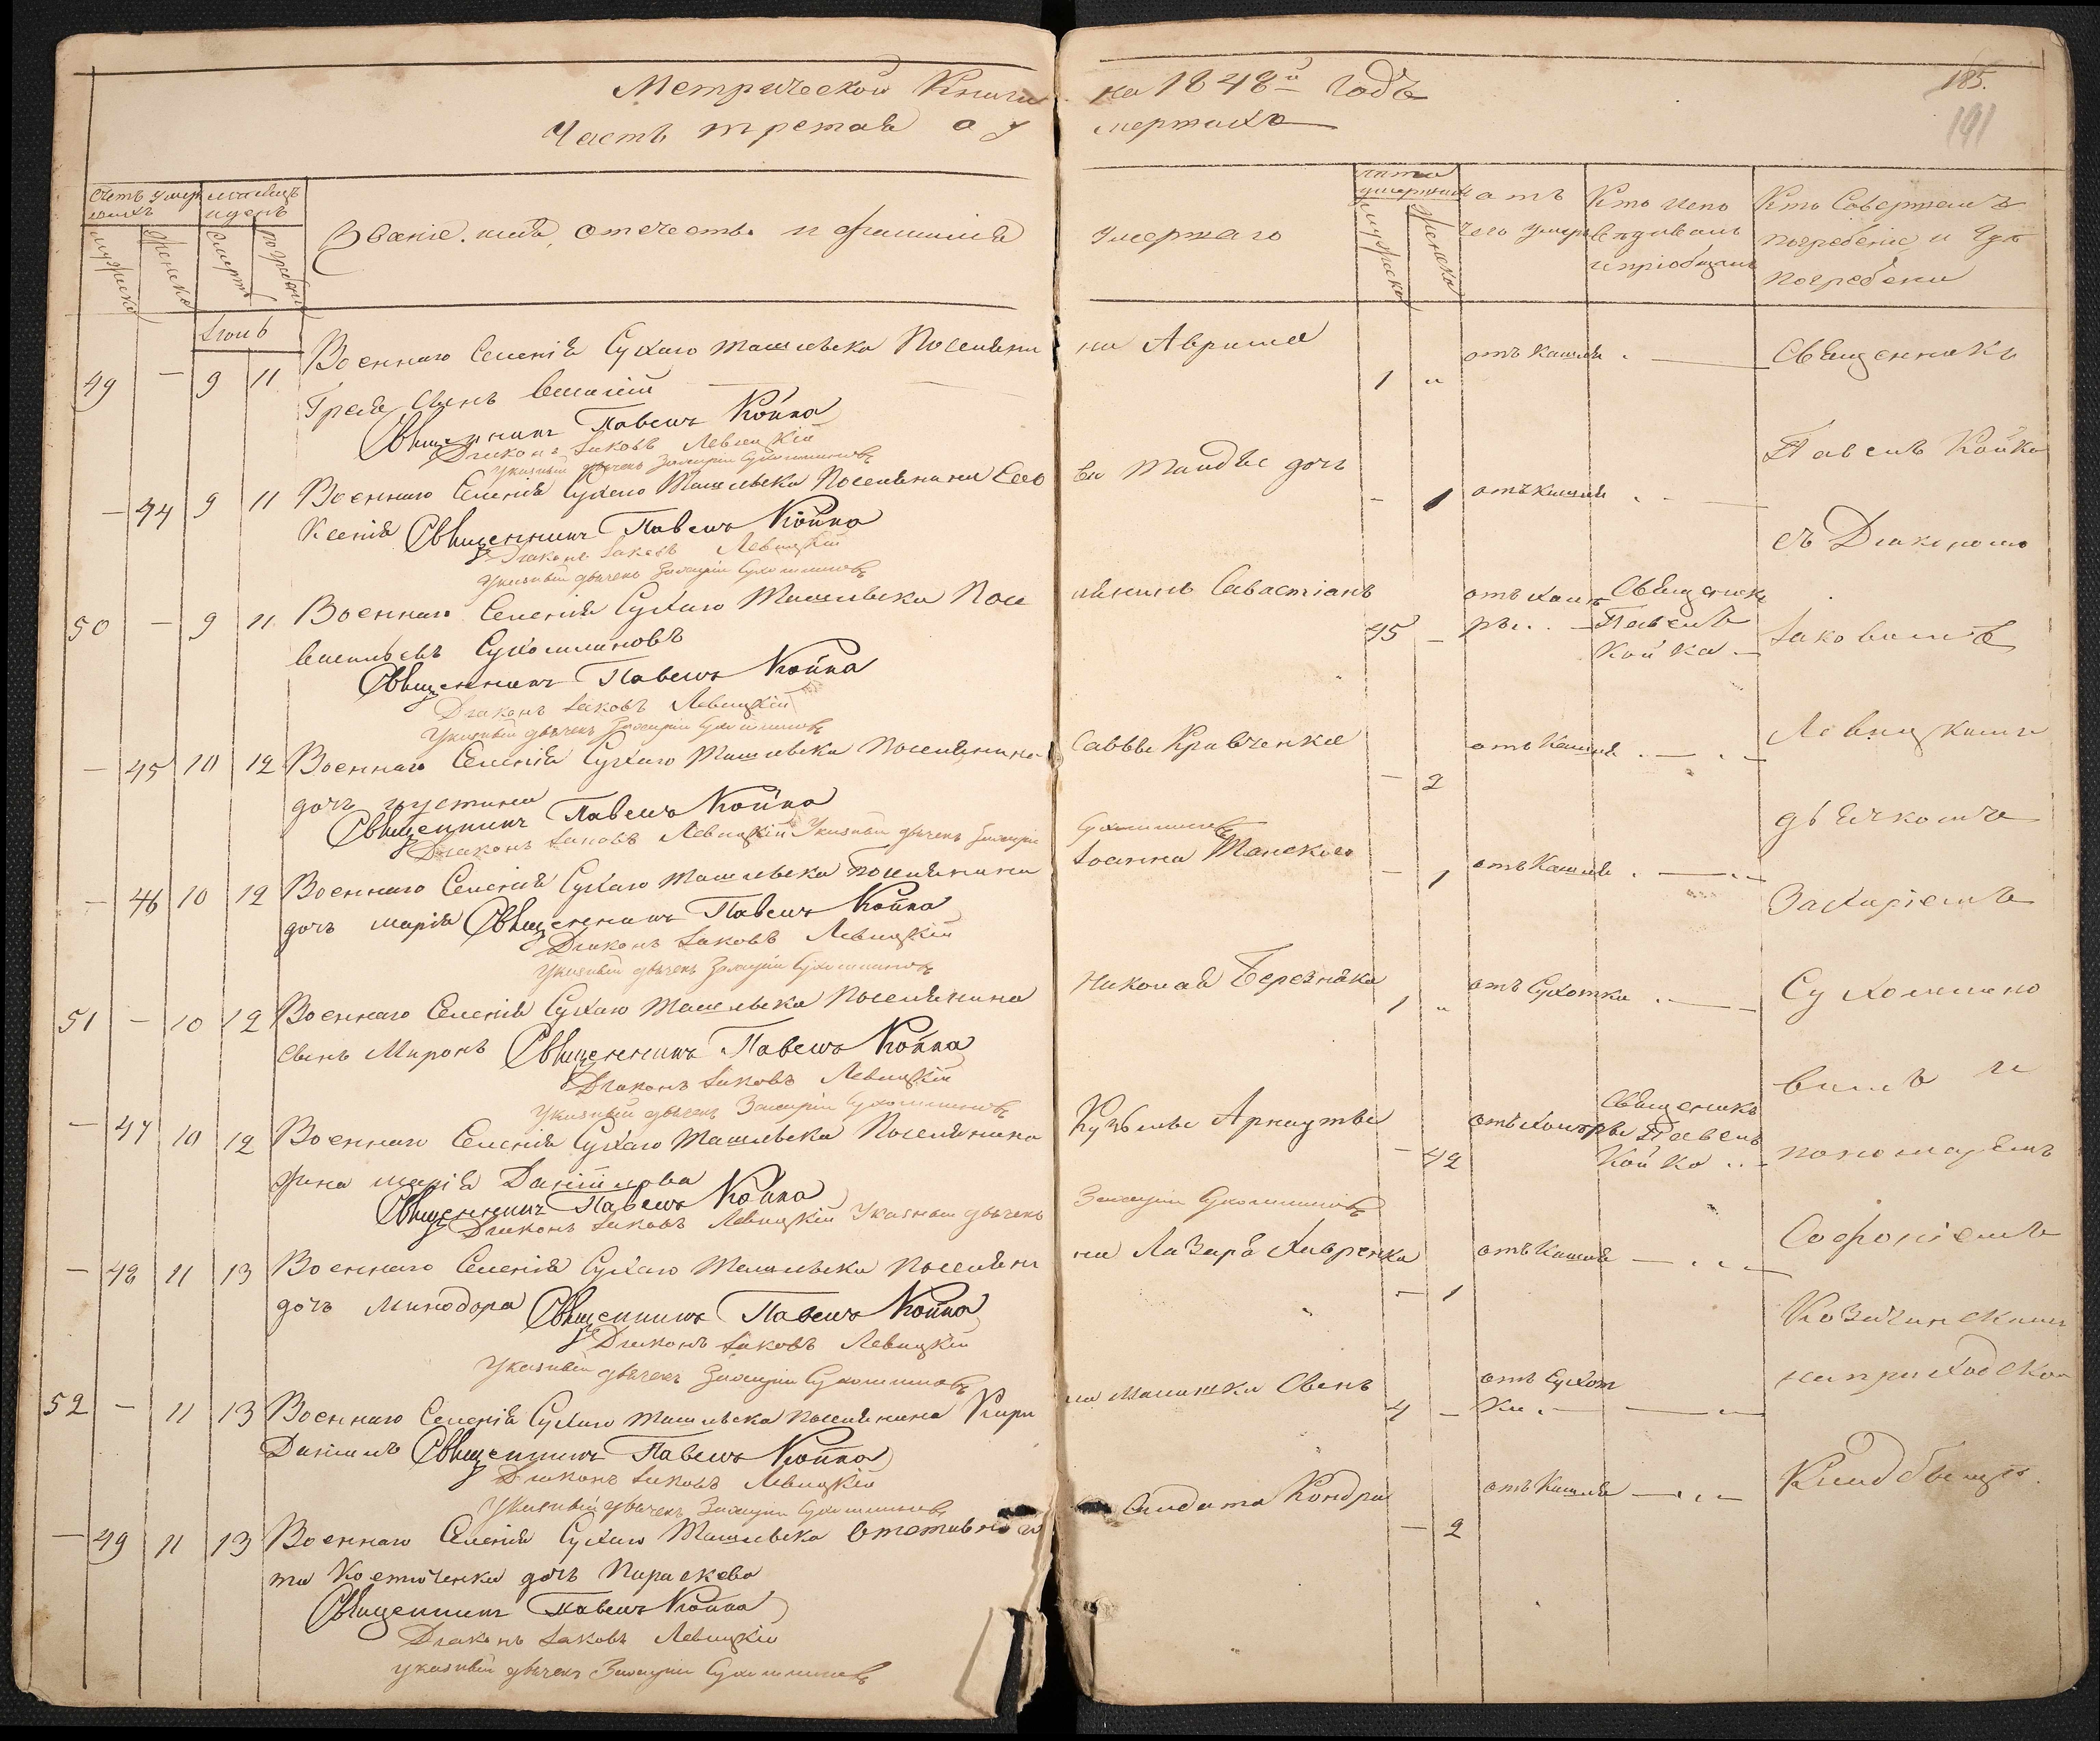 Метрической Книги на 1848й годъ
185.
191
Часть третая о умертыхъ
Счетъ умершихъ
мѣсяцъ и день
Званіе, имя, отечество и фамилия умершаго
лѣта умершихъ
отъ чего умеръ
Кто исповѣдывалъ и пріобщалъ
Кто Совершалъ погребеніе и Гдѣ погребены
мужска
женска
смерти
погребенія
мужска
женска
Іюнь
49 — 9 11 Военнаго Селенія Сухаго Ташлыка Поселянина Аврама 1 " отъ Кашля
Грека Сынъ Василій
Священникъ Павелъ Койка
Діаконъ Іаковъ Левицкій
Указный дьячекъ Захарій Сухомлиновъ
— 44 9 11 Военнаго Селенія Сухаго Ташлыка Поселянина дочь — 1 отъ Кашля
Ксенія Священникъ Павелъ Койка
Діаконъ Іаковъ Левицкій
Указный дьячекъ Захарій Сухомлиновъ
50 — 9 11 Военнаго Селенія Сухаго Ташлыка Поселянинъ Савастіанъ 45 — отъ Холеры Священикъ Павелъ Койка
Васильевъ Сухомлиновъ
Священникъ Павелъ Койка
Діаконъ Іаковъ Левицкій
Указный дьячекъ Захарій Сухомлиновъ
— 45 10 12 Военнаго Селенія Сухаго Ташлыка Поселянина Саввы Кравченка — 2 отъ Кашля
дочь Иустина
Священникъ Павелъ Койка
Діаконъ Іаковъ Левицкій Указный дьячекъ Захарій Сухомлиновъ
— 46 10 12 Военнаго Селенія Сухаго Ташлыка Поселянина Іоанна Танскаго — 1 отъ Кашля
дочь Марія Священникъ Павелъ Койка
Діаконъ Іаковъ Левицкій
Указный дьячекъ Захарій Сухомлиновъ
51 — 10 12 Военнаго Селенія Сухаго Ташлыка Поселянина Николая Березняка 1 " отъ Сухотки
Сынъ Миронъ Священникъ Павелъ Койка
Діаконъ Іаковъ Левицкій
Указный дьячекъ Захарій Сухомлиновъ
— 47 10 12 Военнаго Селенія Сухаго Ташлыка Поселянина Кузьмы Арнаутвы — 42 отъ Холеры Священикъ Павелъ Койка
жена Марія Даніилова
Священникъ Павелъ Койка
Діаконъ Іаковъ Левицкій Указный дьячекъ Захарій Сухомлиновъ
— 48 11 13 Военнаго Селенія Сухаго Ташлыка Поселянина Лазаря Хавренка — 1 отъ Кашля
дочь Минодора Священникъ Павелъ Койка
Діаконъ Іаковъ Левицкій
Указный дьячекъ Захарій Сухомлиновъ
52 — 11 13 Военнаго Селенія Сухаго Ташлыка Поселянина Сынъ 4 — отъ Сухотки
Даніилъ Священникъ Павелъ Койка
Діаконъ Іаковъ Левицкій
Указный дьячекъ Захарій Сухомлиновъ
— 49 11 13 Военнаго Селенія Сухаго Ташлыка Отставнаго Солдата Кондра — 2 отъ Кашля
та Костюченка дочь Параскева
Священникъ Павелъ Койка
Діаконъ Іаковъ Левицкій
указный дьячекъ Захарій Сухомлиновъ
Священникъ
Павелъ Койка
съ Діакономъ
Іаковомъ
Левицкимъ
дьячкомъ
Захаріемъ
Сухомлино
вымъ и
пономаремъ
Софроніемъ
Козачинскимъ
на приходском
Кладбищѣ.